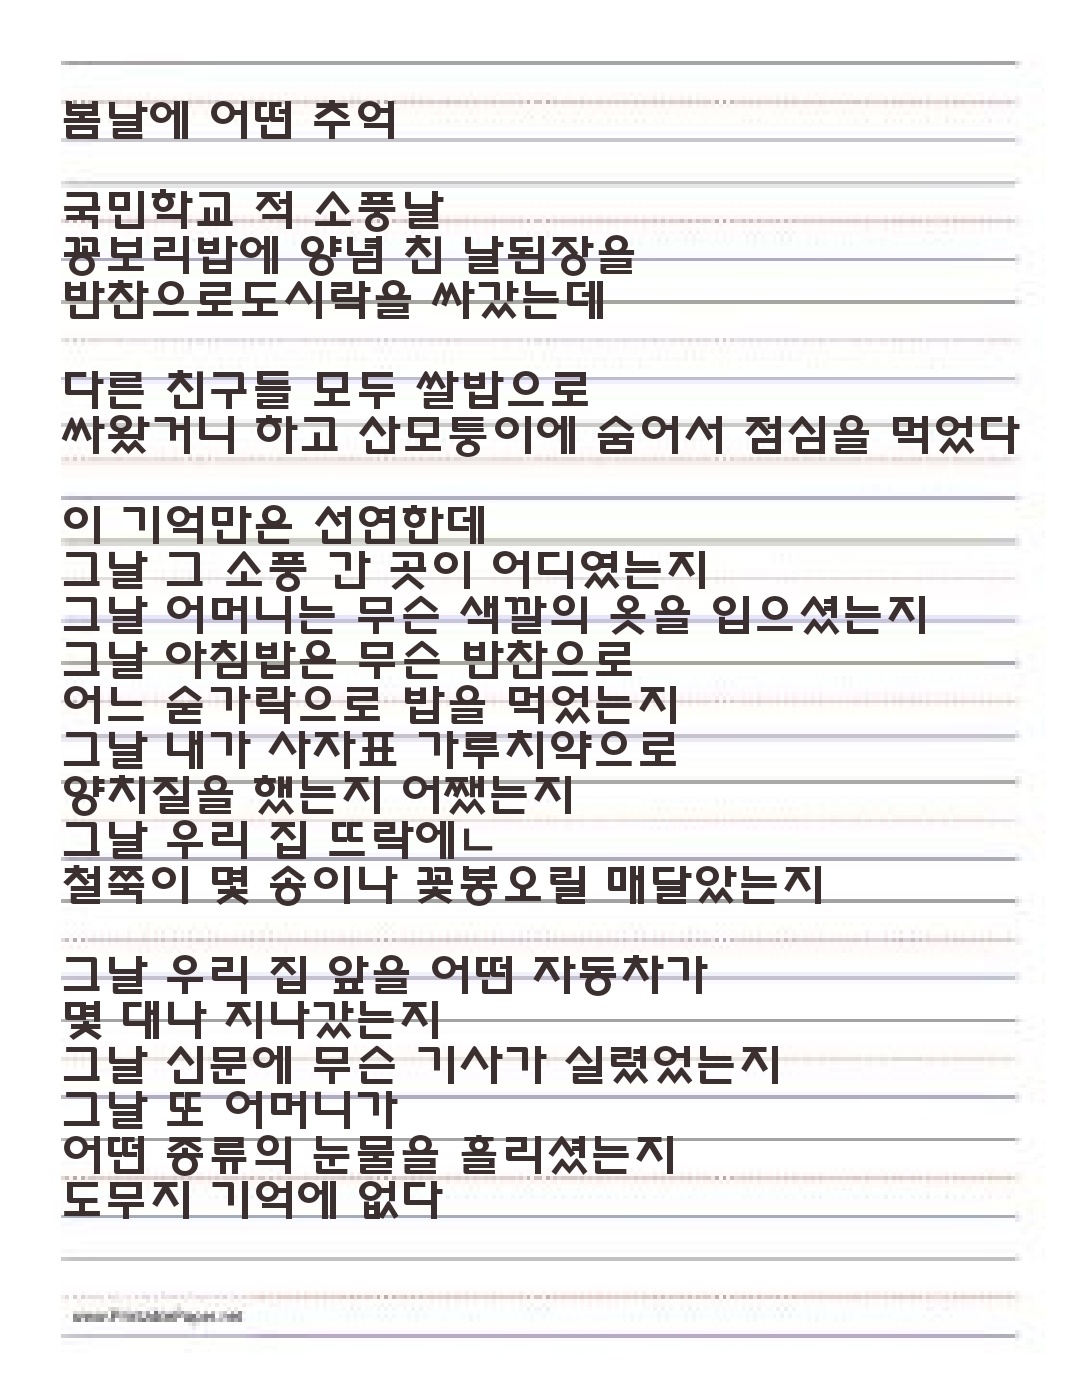 봄날에 어떤 추억
국민학교 적 소풍날
꽁보리밥에 양념 친 날된장을
반찬으로도시락을 싸갔는데
다른 친구들 모두 쌀밥으로
싸왔거니 하고 산모퉁이에 숨어서 점심을 먹었다
이 기억만은 선연한데
그날 그 소풍 간 곳이 어디였는지
그날 어머니는 무슨 색깔의 옷을 입으셨는지
그날 아침밥은 무슨 반찬으로
어느 숟가락으로 밥을 먹었는지
그날 내가 사자표 가루치약으로
양치질을 했는지 어쨌는지
그날 우리 집 뜨락에ㄴ
철쭉이 몇 송이나 꽃봉오릴 매달았는지
그날 우리 집 앞을 어떤 자동차가
몇 대나 지나갔는지
그날 신문에 무슨 기사가 실렸었는지
그날 또 어머니가
어떤 종류의 눈물을 흘리셨는지
도무지 기억에 없다
www.PrintablePaper.net